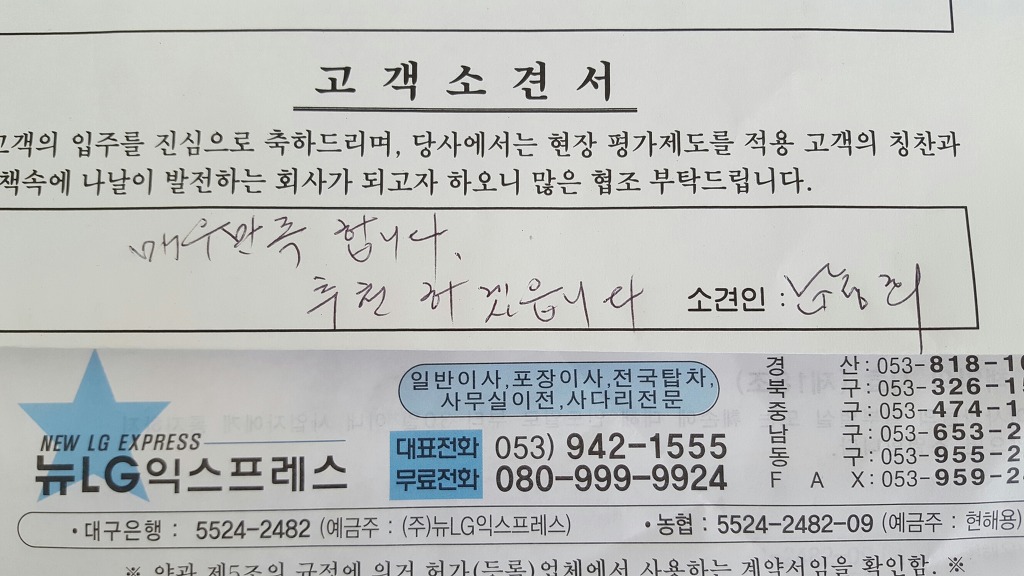 고 객 소 견 서
고객의 입주를 진심으로 축하드리며, 당사에서는 현장 평가제도를 적용 고객의 칭찬과
책속에 나날이 발전하는 회사가 되고자 하오니 많은 협조 부탁드립니다.
매우만족 합니다.
추천 하겠읍니다 소견인 :
일반이사,포장이사,전국탑차,
사무실이전,사다리전문
NEW LG EXPRESS
뉴LG익스프레스
대표전화 053) 942-1555
무료전화 080-999-9924
경 산: 053-818-10
북 구: 053-326-15
중 구: 053-474-1
남 구: 053-653-2
동 구: 053-955-2
F A X: 053-959-2
•대구은행 : 5524-2482 (예금주 : (주)뉴LG익스프레스) •농협 : 5524-2482-09 (예금주 : 현해용)
※ 약관 제5조의 규정에 의거 허가(등록)업체에서 사용하는 계약서임을 확인함. ※